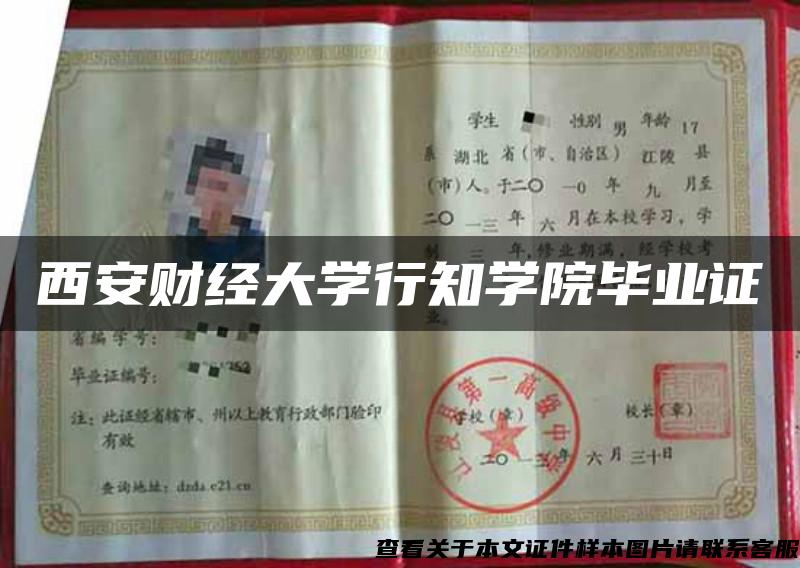 学生 性别 男 年龄 17
系 湖北 省(市、自治区) 江陵 县
(市)人。于二〇一0 年 九 月至
二〇一三 年 六 月在本校学习，学
制 三 年,修业期满，经学校考
西安财经大学行知学院毕业证
业。
省编学号：
毕业证编号：
注：此证经省辖市、州以上教育行政部门验印
有效
查询地址：dzda.e21.cn
江陵县第一高级中学
学校(章) 校长(章)
二〇一三年 六 月 三十日
查看关于本文证件样本图片请联系客服